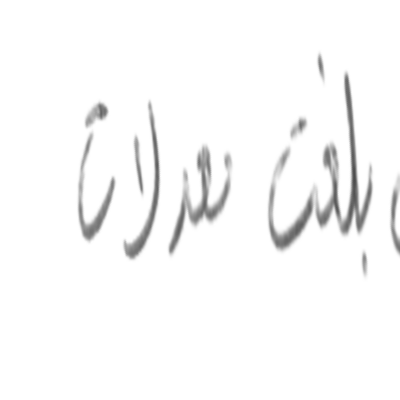 بلغت معدلات